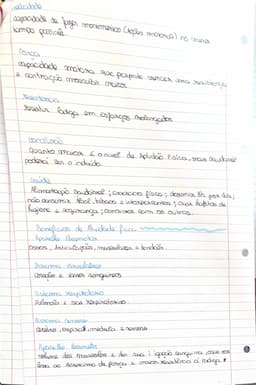 velocidade
capacidade de fazer movimentos (ação motora) no menor
tempo possível.
Força
capacidade motora que permite vencer uma resistência
e contração muscular maior
Resistência
resistir fadiga em esforços prolongados
conclusão
quanto maior é o nível de Aptidão Física, mais saudável
poderá ser o indivíduo.
Saúde
Alimentação saudável; exercício físico; dormir 8h por dia;
não consumir álcool, tabaco e
higiene e segurança; conviver com os outros.
Benefícios da Atividade física
Aparelho locomotor
ossos, articulações, músculos e tendões.
Sistema
coração e vasos sanguíneos
Sistema respiratório
Pulmões e vias respiratórias
Sistema nervoso
cérebro, espinal medula e nervos
Aparelho locomotor
volume dos músculos e da sua